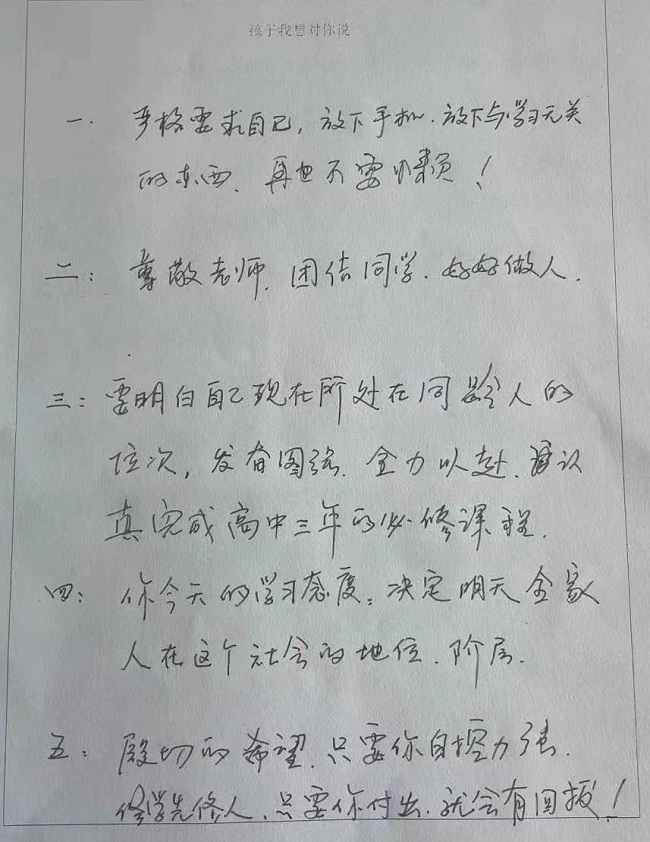 孩子我想对你说
一. 严格要求自己，放下手机.放下与学习无关
的东西.再也不要懒！
二：尊敬老师.团结同学.好好做人.
三：要明白自己现在所处在同龄人的
位次，发奋图强.全力以赴.认
真完成高中三年的必修课程.
四：你今天的学习态度：决定明天全家
人在这个社会的地位.阶层.
五：殷切的希望.只要你自控力强.
修学先修人.只要你付出.就会有回报！